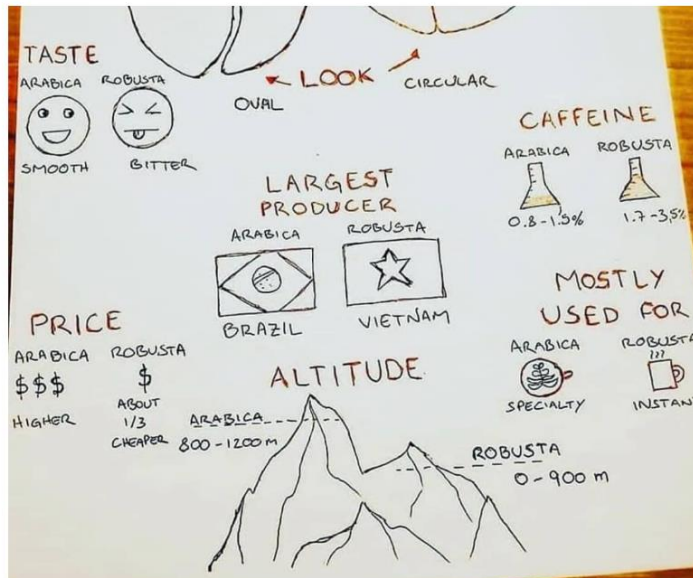 TASTE
ARABICA ROBUSTA
SMOOTH BITTER
LOOK
OVAL CIRCULAR
CAFFEINE
ARABICA ROBUSTA
0.8-1.5% 1.7-3,5%
LARGEST
PRODUCER
ARABICA ROBUSTA
BRAZIL VIETNAM
MOSTLY
USED FOR
ARABICA ROBUSTA
SPECIALTY INSTAN
PRICE
ARABICA ROBUSTA
$$$ $
HIGHER ABOUT
1/3
CHEAPER
ALTITUDE
ARABICA
800-1200 m
ROBUSTA
0-900 m